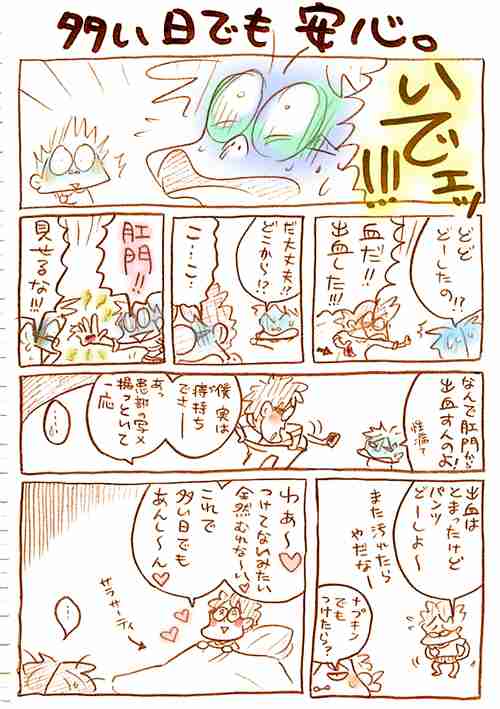 多い日でも安心。
いでェッ!!!
どど
どーしたの!?
血だ!!
出血した!!!
だ大丈夫!?
どこから!?
こ…こ…
肛門!!
見せるな!!!
なんで肛門から
出血すんのよ!
性病?
僕実は
痔持ち
でさー
あっ
患部の写メ
撮っといて
一応
…。
出血は
とまったけど
パンツ
どーしよ〜
また汚れたら
やだなー
ナプキン
でも
つけたら?
わぁ〜♡
つけてないみたい
全然むれな〜い♡
これで
多い日でも
あんし〜ん♡
サラサーティ
…。